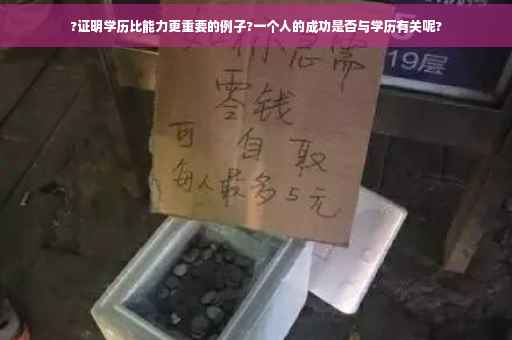 ?证明学历比能力更重要的例子?一个人的成功是否与学历有关呢?
你急需
零钱
可自取
每人最多5元
19层